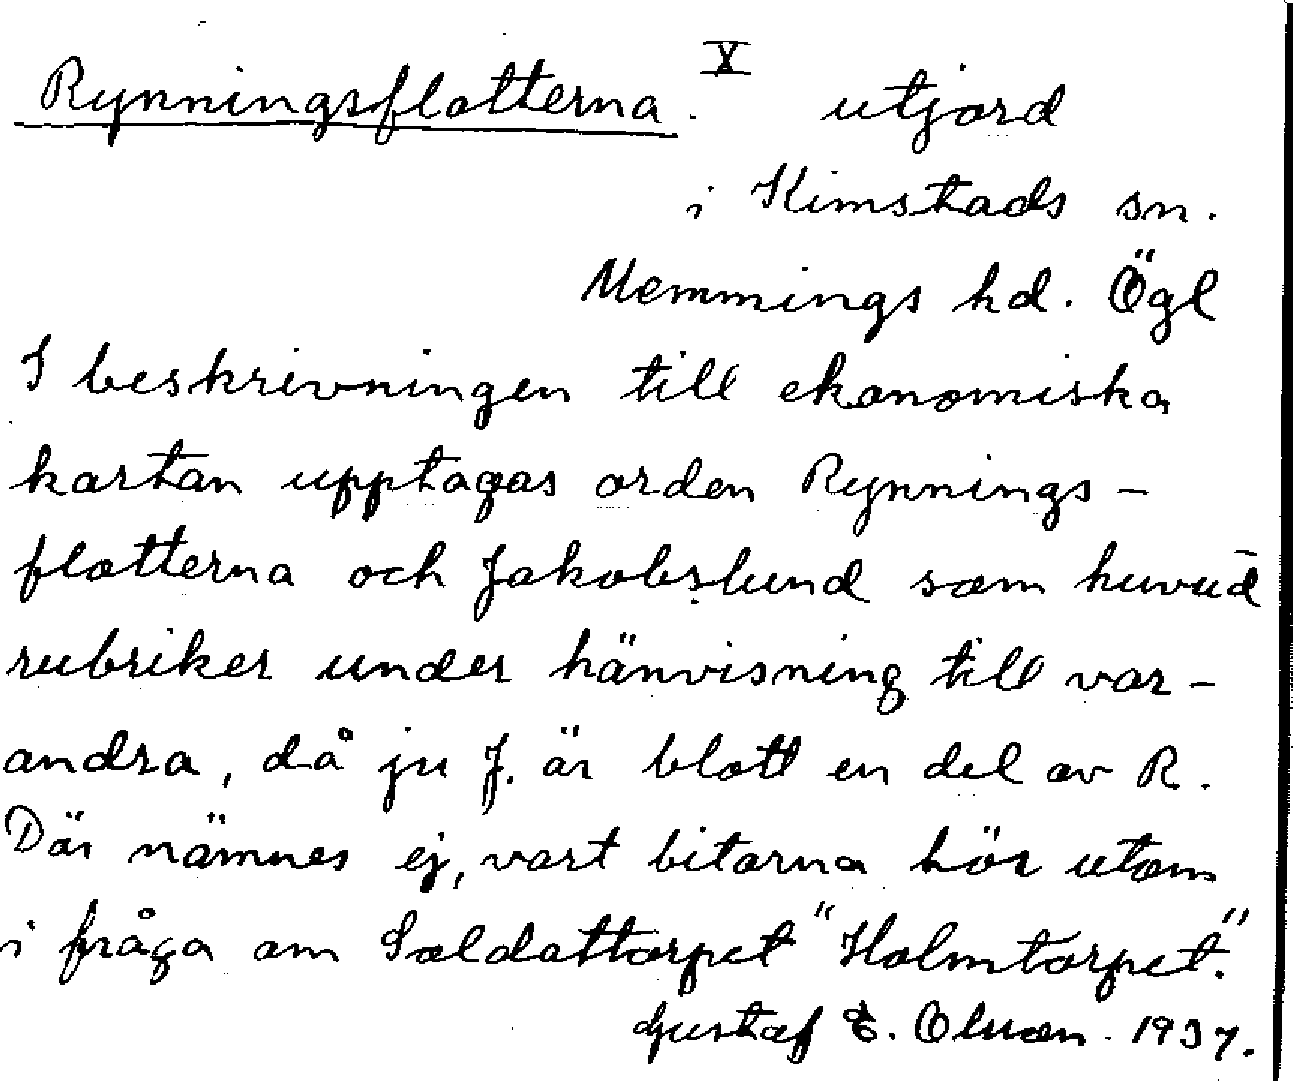 Rynningsflatterna. X utjord
i Kimstads sn.
Memmings hd. Ögl
I beskrivningen till ekonomiska
kartan upptagas orden Rynnings-
flatterna och Jakobslund som huvud-
rubriker under hänvisning till var-
andra, då ju J. är blott en del av R.
Där nämnes ej, vart bitarna hör utom
i fråga om Soldattorpet "Holmtorpet."
Gustaf E. Olsson. 1937.